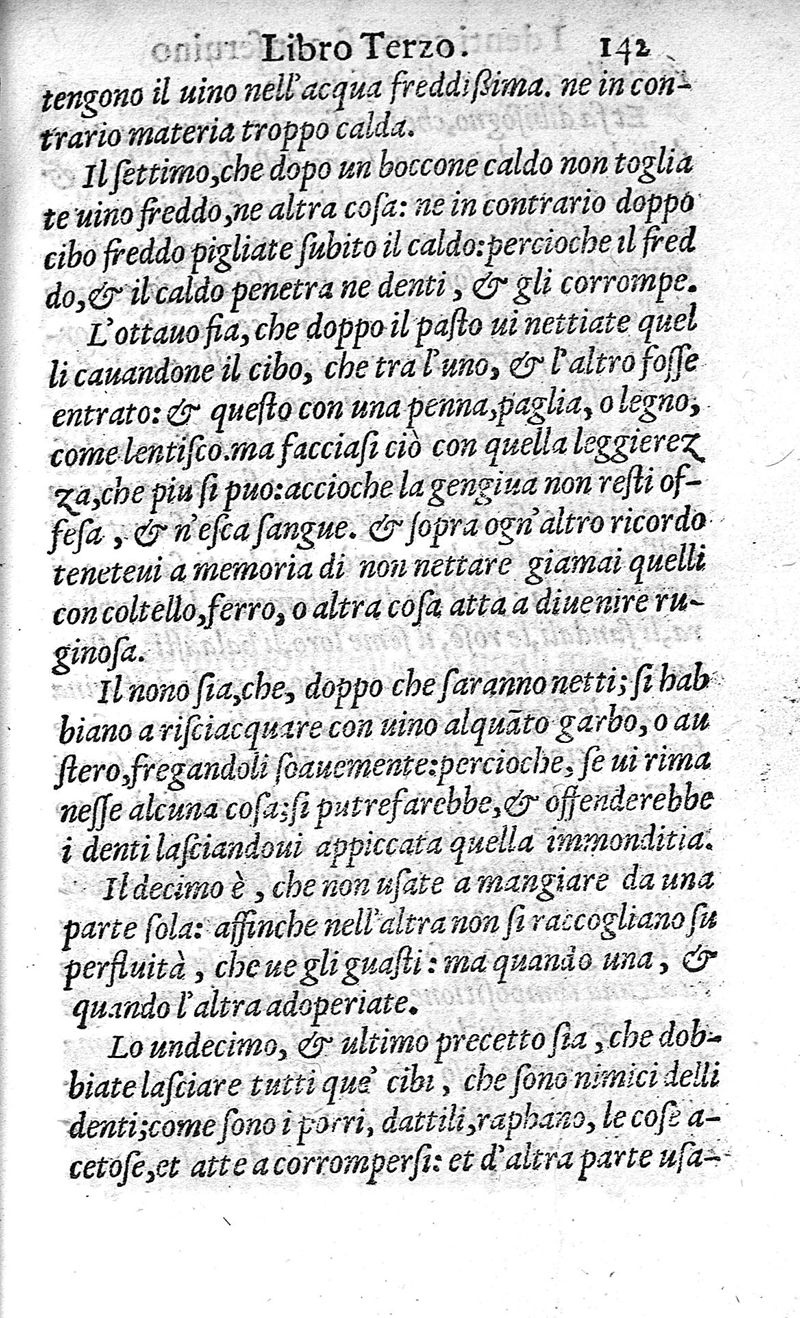 Libro Terzo. 142
tengono il uino nell'acqua freddiſſima. ne in con-
trario materia troppo calda.
Il ſettimo, che dopo un boccone caldo non toglia
te uino freddo, ne altra coſa: ne in contrario doppo
cibo freddo pigliate ſubito il caldo: percioche il fred
do, & il caldo penetra ne denti, & gli corrompe.
L'ottauo ſia, che doppo il paſto ui nettiate quel
li cauandone il cibo, che tra l'uno, & l'altro foſſe
entrato: & queſto con una penna, paglia, o legno,
come lentiſco. ma facciaſi ciò con quella leggierez
za, che piu ſi puo: accioche la gengiua non reſti of-
feſa, & n'eſca ſangue. & ſopra ogn'altro ricordo
teneteui a memoria di non nettare giamai quelli
con coltello, ferro, o altra coſa atta a diuenire ru-
ginoſa.
Il nono ſia, che, doppo che ſaranno netti; ſi hab
biano a riſciacquare con uino alquāto garbo, o au
ſtero, fregandoli ſoauemente: percioche, ſe ui rima
neſſe alcuna coſa; ſi putrefarebbe, & offenderebbe
i denti laſciandoui appiccata quella immonditia.
Il decimo è, che non uſate a mangiare da una
parte ſola: affinche nell'altra non ſi raccogliano ſu
perfluità, che ue gli guaſti: ma quando una, &
quando l'altra adoperiate.
Lo undecimo, & ultimo precetto ſia, che dob-
biate laſciare tutti que' cibi, che ſono nimici delli
denti; come ſono i porri, dattili, raphano, le coſe a-
cetoſe, et atte a corromperſi: et d'altra parte uſa-